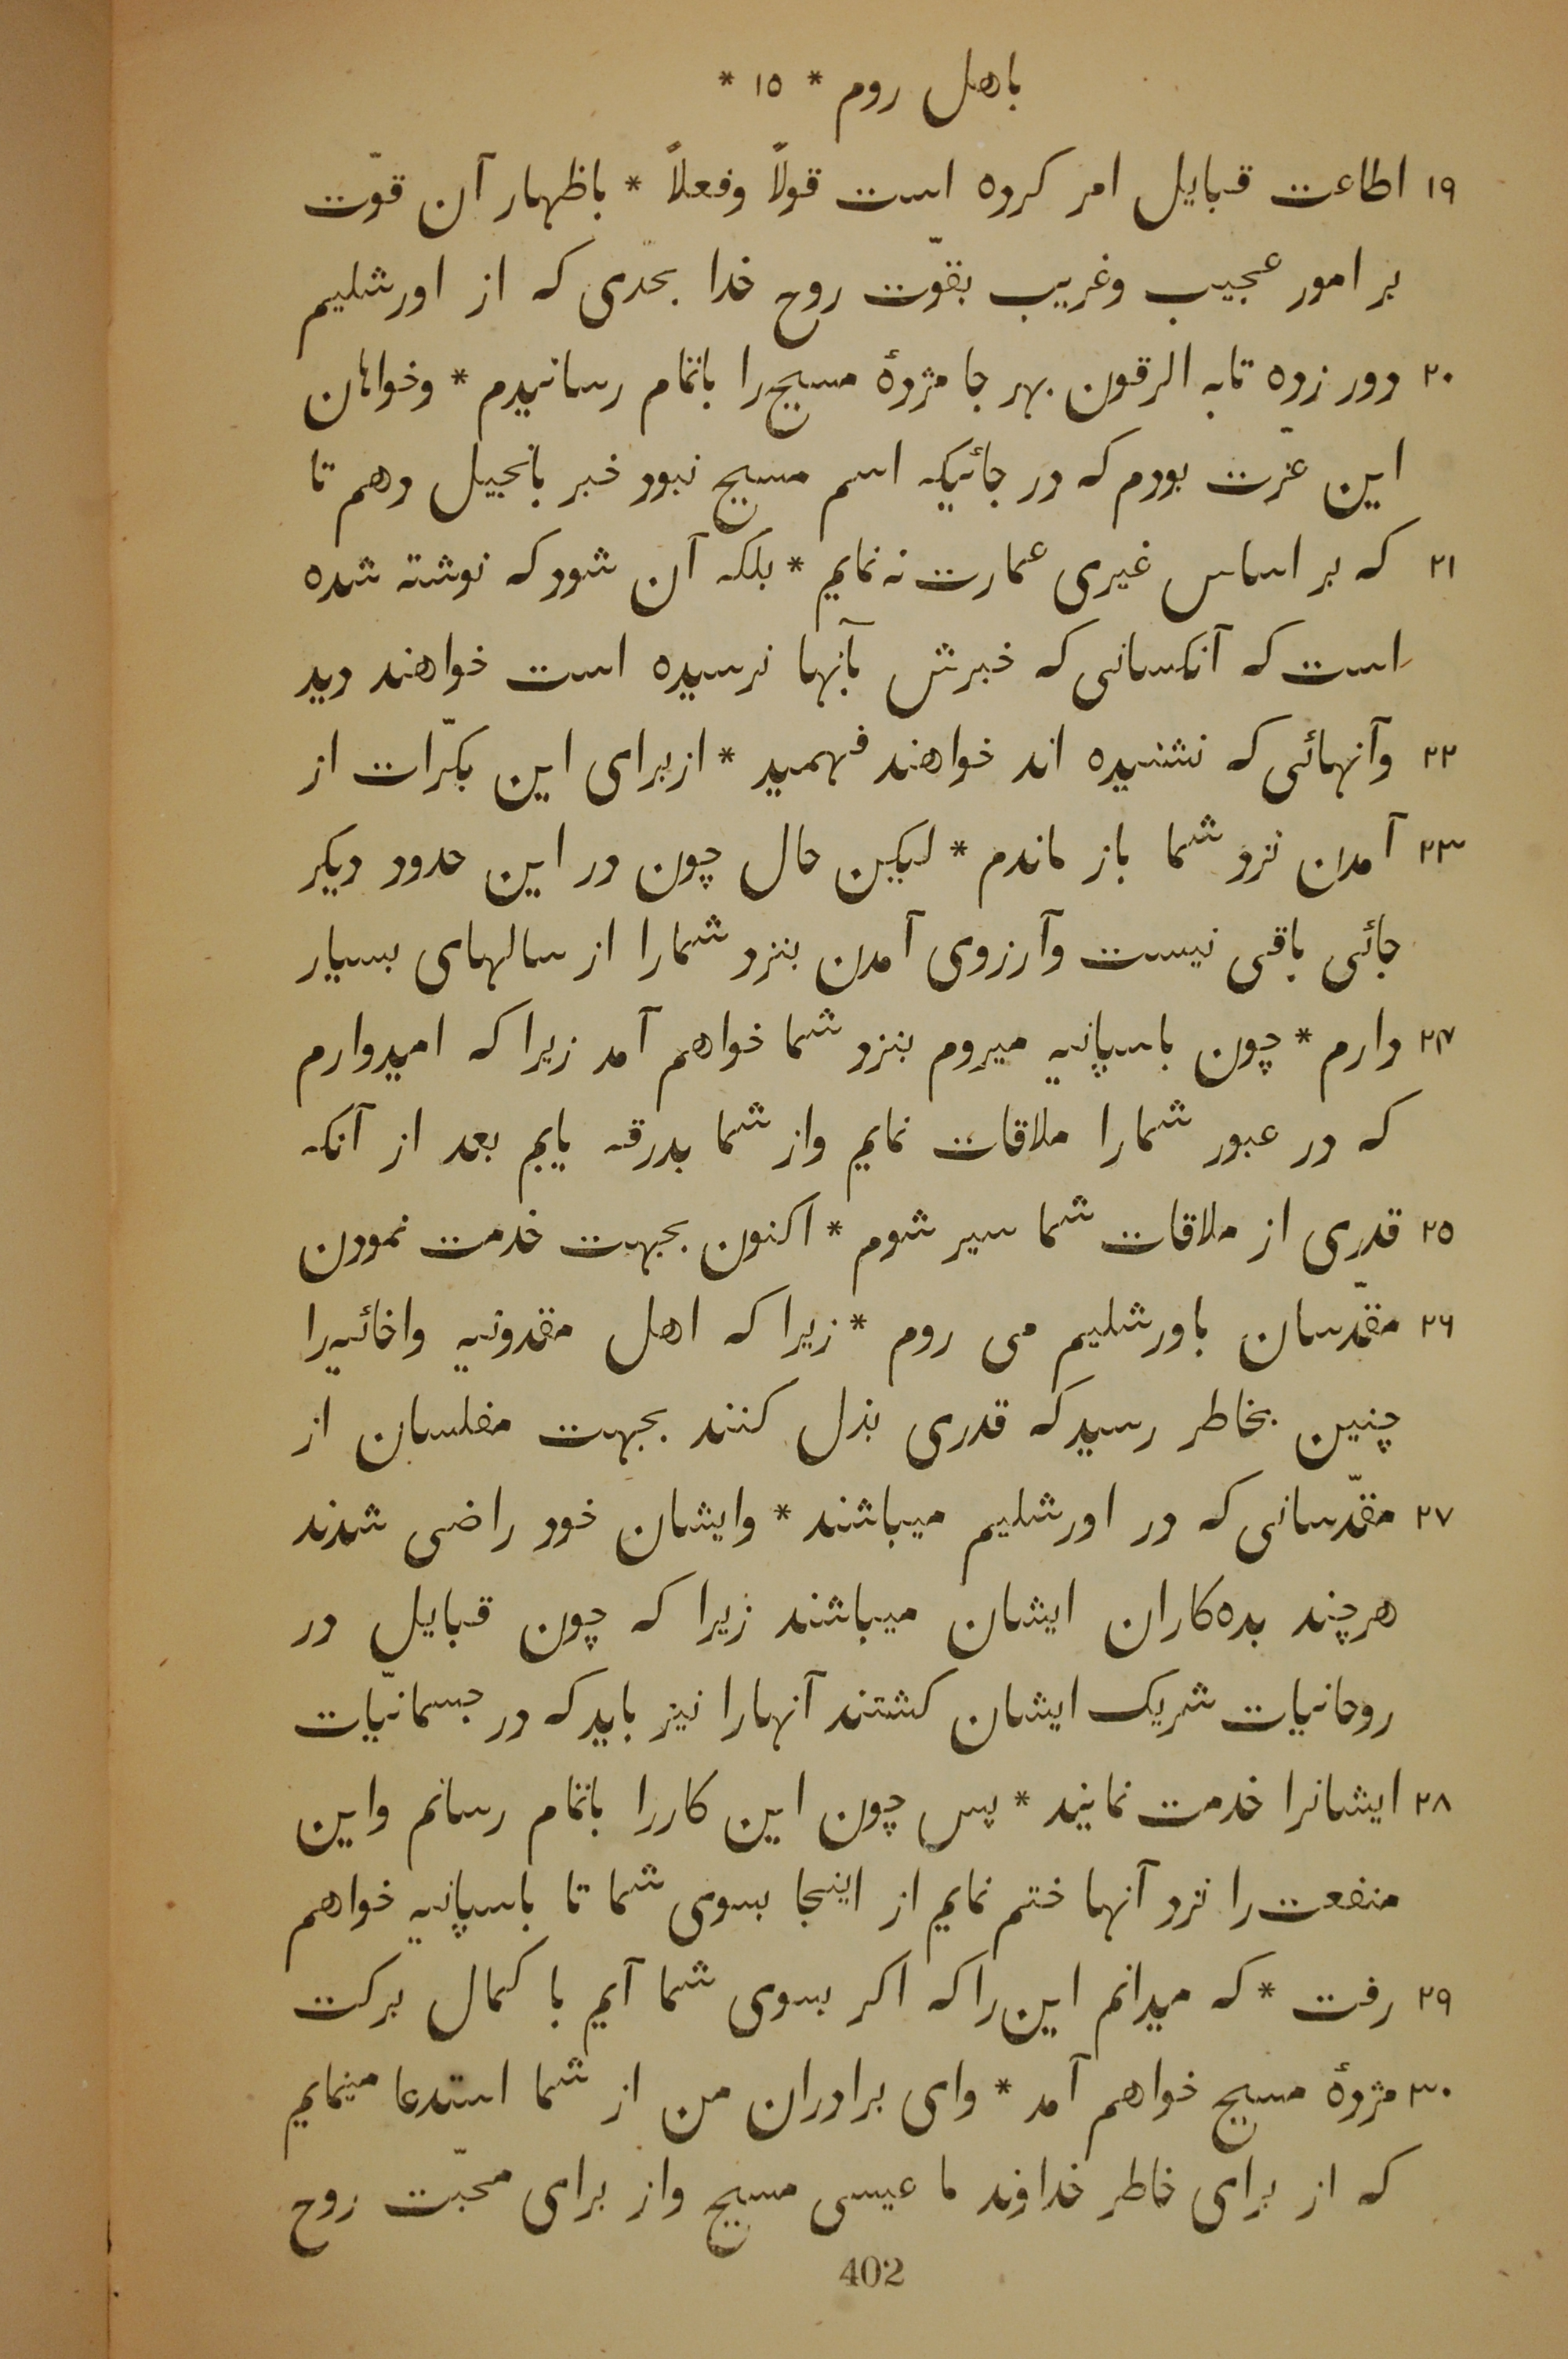 باهل روم * ۱۵ *
۱۹ اطاعت قبایل امر کرده است قولاً وفعلاً * باظهار آن قوّت
بر امور عجیب وغریب بقوّت روح خدا بحدّی که از اورشلیم
۲۰ دور زده تا به الرقون بهر جا مژدهٔ مسیح را باتمام رسانیدم * وخواهان
این عزّت بودم که در جائیکه اسم مسیح نبود خبر بانجیل دهم تا
۲۱ که بر اساس غیری عمارت نه نمایم * بلکه آن شود که نوشته شده
است که آنکسانی که خبرش بآنها نرسیده است خواهند دید
۲۲ وآنهائی که نشنیده اند خواهند فهمید * از برای این بکرّات از
۲۳ آمدن نزد شما باز ماندم * لیکن حال چون در این حدود دیکر
جائی باقی نیست وآرزوی آمدن بنزد شما را از سالهای بسیار
۲۴ دارم * چون باسپانیه میروم بنزد شما خواهم آمد زیرا که امیدوارم
که در عبور شما را ملاقات نمایم واز شما بدرقه یابم بعد از آنکه
۲۵ قدری از ملاقات شما سیر شوم * اکنون بجهت خدمت نمودن
۲۶ مقدّسان باورشلیم می روم * زیرا که اهل مقدونیه واخائیه را
چنین بخاطر رسید که قدری بذل کنند بجهت مفلسان از
۲۷ مقدّسانی که در اورشلیم میباشند * وایشان خود راضی شدند
هرچند بده‌کاران ایشان میباشند زیرا که چون قبایل در
روحانیات شریک ایشان کشتند آنها را نیز باید که در جسمانیّات
۲۸ ایشانرا خدمت نمایند * پس چون این کار را باتمام رسانم واین
منفعت را نزد آنها ختم نمایم از اینجا بسوی شما تا باسپانیه خواهم
۲۹ رفت * که میدانم این را که اکر بسوی شما آیم با کمال برکت
۳۰ مژدهٔ مسیح خواهم آمد * وای برادران من از شما استدعا مینمایم
که از برای خاطر خداوند ما عیسی مسیح واز برای محبّت روح
402